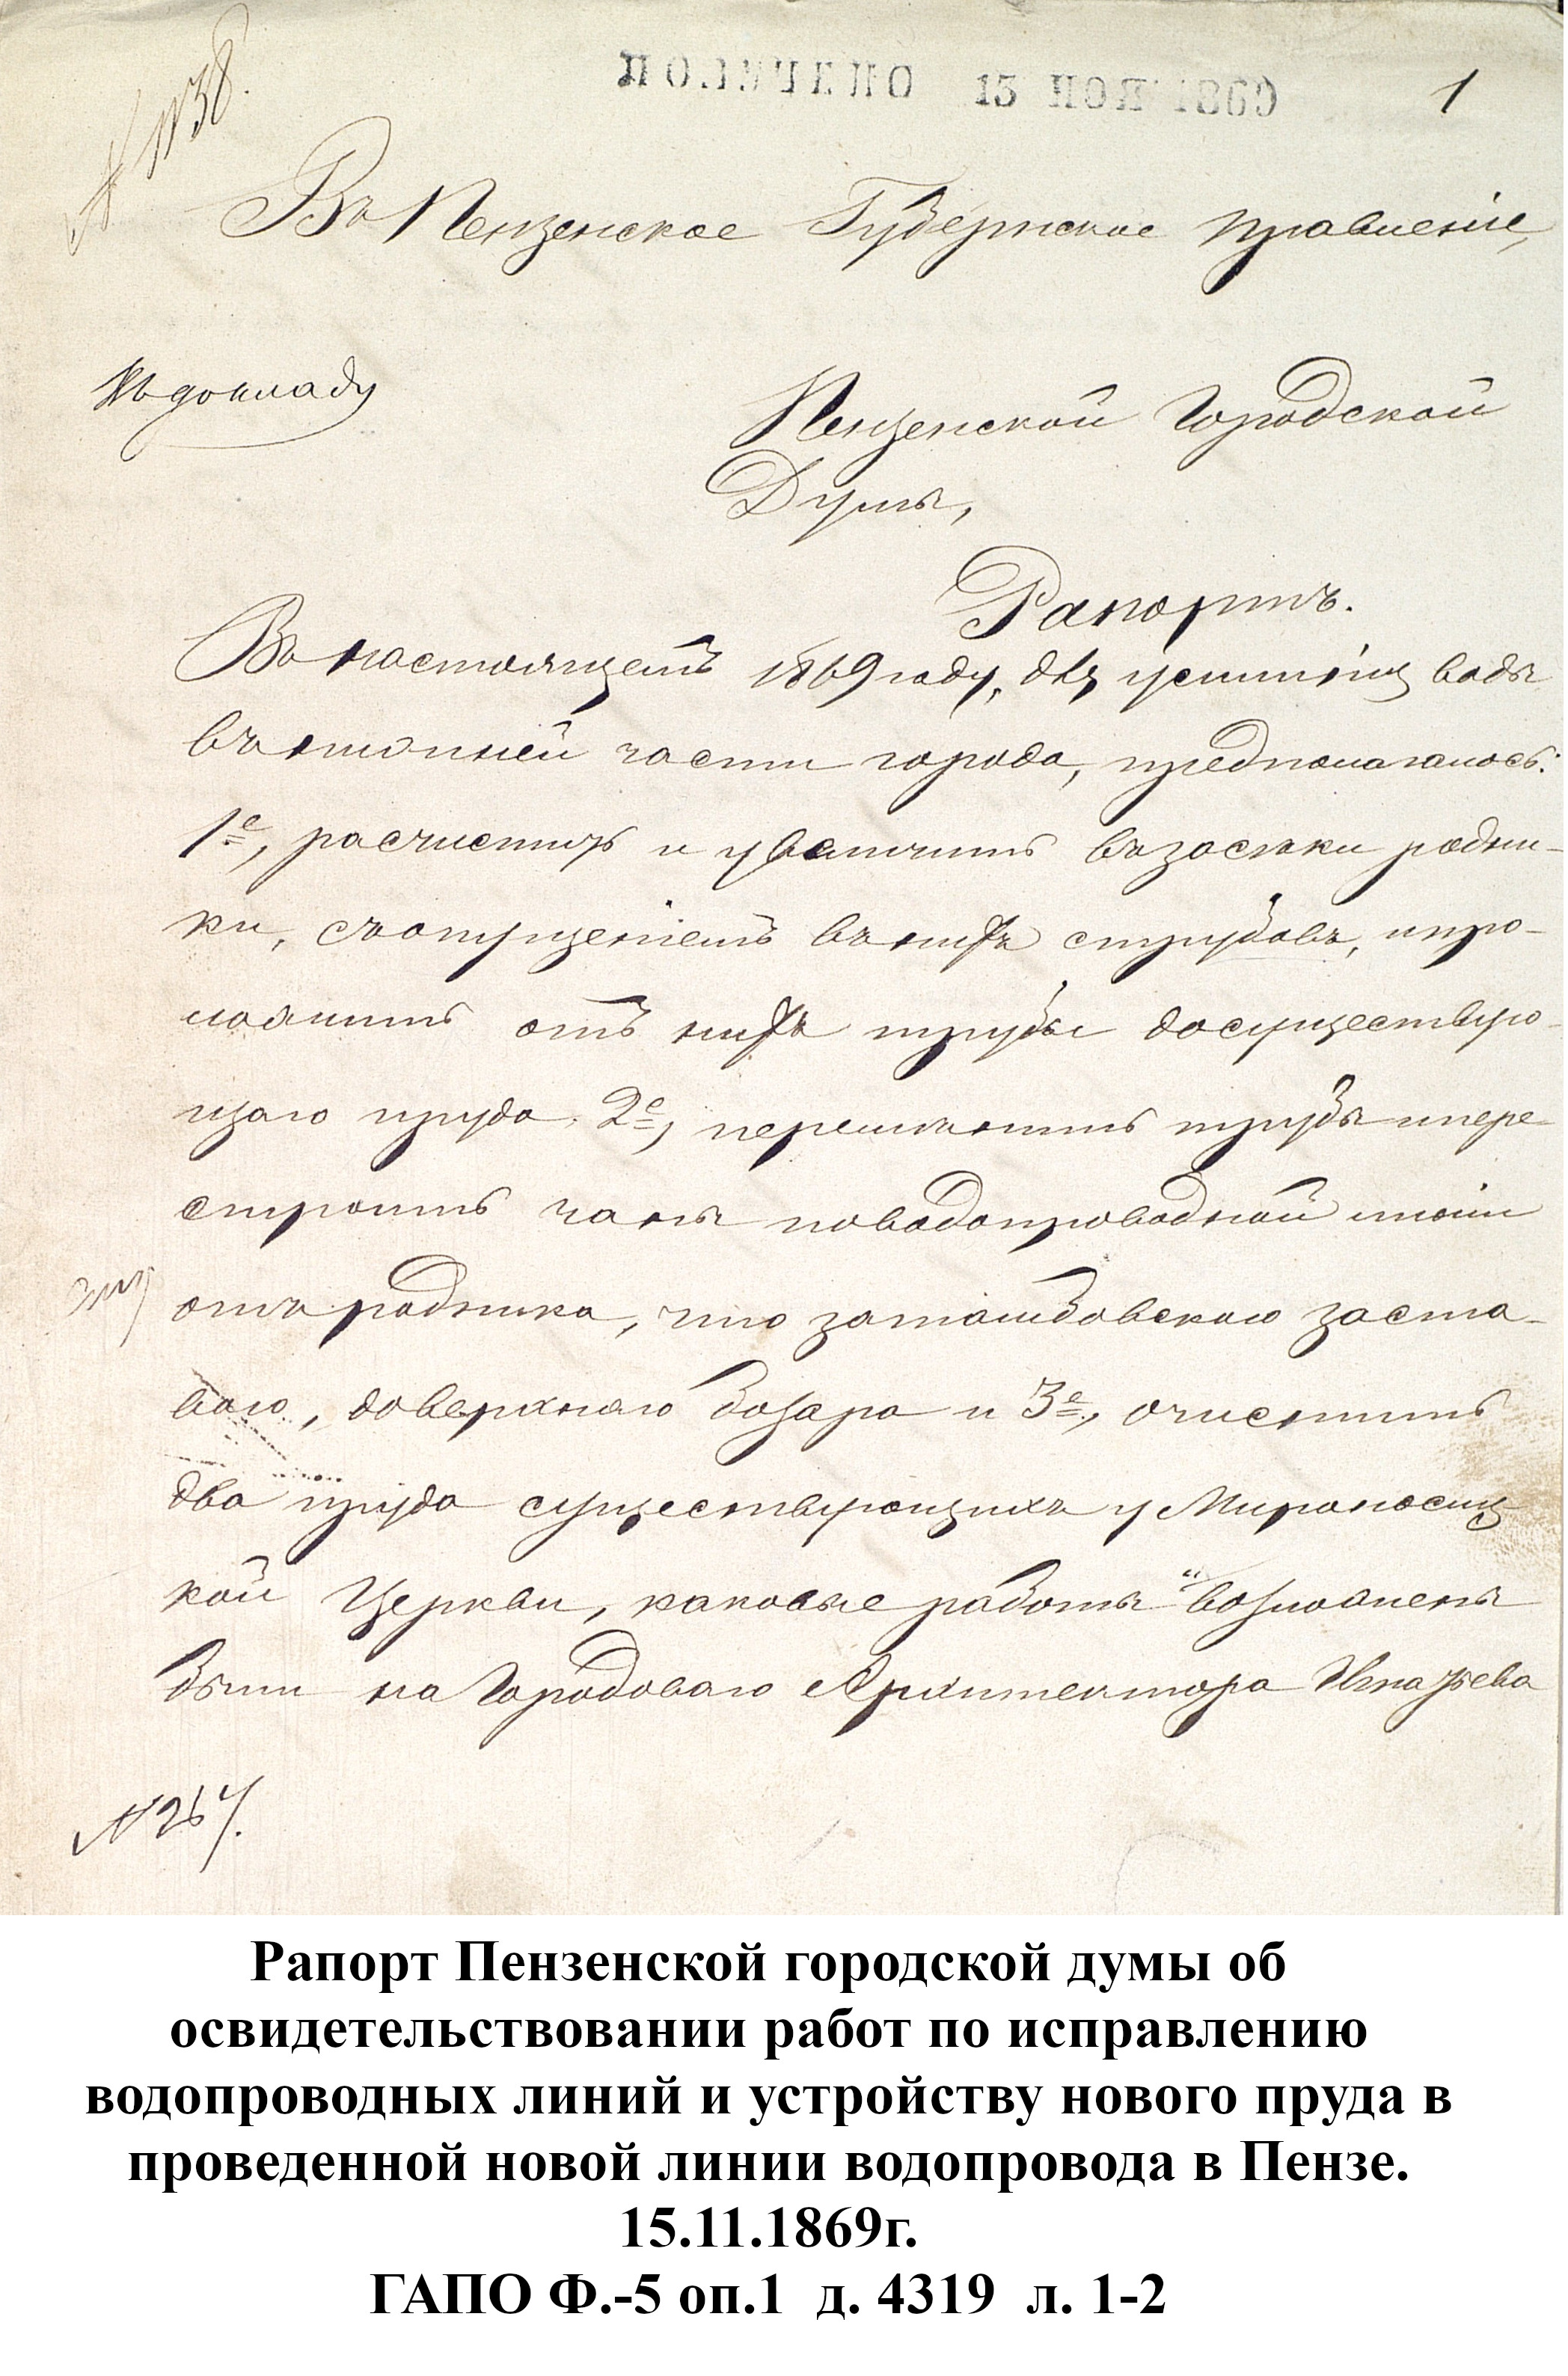 № 1138.
ПОЛУЧЕНО 15 НОЯ 1869
1
Въ Пензенское Губернское правленіе,
Къ докладу
Пензенской Городской
Думы,
Рапортъ.
Въ настоящемъ 1869 году, для усиленія воды
въ нагорней части города, предполагалось:
1е, расчистить и увеличить въ засѣки родни-
ки, съ опущеніемъ въ нихъ срубовъ, и про-
ложить отъ нихъ трубы до существую-
щаго пруда. 2е, перемѣнить трубы и пере-
строить чаны по водопроводной линіи
отъ родника, что за тамбовскою заста-
вою, до верхняго базара и 3е, очистить
два пруда существующихъ у Мироносиц
кой Церкви, каковые работы возложены
были на Городоваго Архитектора Игнатьева
№ 267.
Рапорт Пензенской городской думы об
освидетельствовании работ по исправлению
водопроводных линий и устройству нового пруда в
проведенной новой линии водопровода в Пензе.
15.11.1869г.
ГАПО Ф.-5 оп.1 д. 4319 л. 1-2